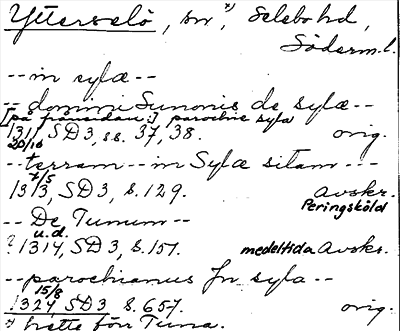 Ytterselö, sn *), Selebo hd,
Söderml.
-- in sylæ --
-- domini Sunonis de sylæ --
[på frånsidan:] parochie syla
1311 20/10 SD3, ss. 37, 38. orig.
-- terram -- in Sylæ sitam ---
1313 7/5, SD3, s. 129. Avskr. Peringsköld
-- De Tunum --
? 1314 u.d., SD3, s. 151. medeltida Avskr.
-- parochianus Jn syla --
1324 15/8 SD3 s. 657. orig.
*) hette förr Tuna.